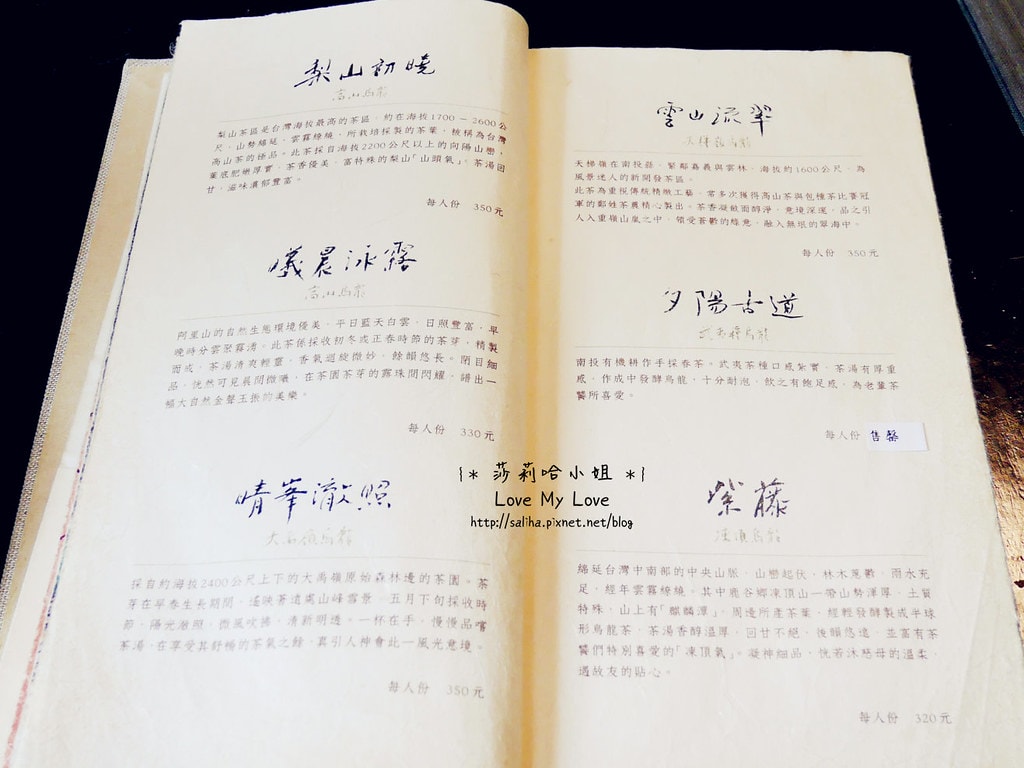 梨山初曉
高山烏龍
梨山茶區是台灣海拔最高的茶區，約在海拔1700－2600公
尺，山勢綿延，雲霧繚繞，所栽培採製的茶葉，被稱為台灣
高山茶的極品。此茶採自海拔2200公尺以上的向陽山巒，
葉底肥嫩厚實，茶香優美，富特殊的梨山「山頭氣」，茶湯回
甘，滋味濃郁豐富。
每人份 350元
曦晨泳露
高山烏龍
阿里山的自然生態環境優美，平日藍天白雲，日照豐富，早
晚時分雲聚霧湧。此茶係採收初冬或正春時節的茶芽，精製
而成，茶湯清爽輕靈，香氣迴旋微妙，餘韻悠長。閉目細
品，恍然可見晨間微曦，在茶園茶芽的露珠間閃耀，譜出一
幅大自然金聲玉振的美樂。
每人份 330元
晴峯澈照
大禹嶺烏龍
採自約海拔2400公尺上下的大禹嶺原始森林邊的茶園。茶
芽在早春生長期間，遙映著遠處山峰雪景，五月下旬採收時
節，陽光澈照，西風吹拂，清新明透，一杯在手，慢慢品嚐
茶湯，在享受其舒暢的茶氣之餘，真引人神會此一風光意境。
每人份 350元
雲山流翠
天梯烏龍
天梯嶺在南投縣，緊鄰嘉義與雲林，海拔約1600公尺，為
風景迷人的新開發茶區。
此茶為重視傳統精緻工藝，常多次獲得高山茶與包種茶比賽冠
軍的鄭姓茶農精心製出。茶香嶺而醇淨，意境深邃，品之引
人入重嶺山嵐之中，領受蒼鬱的綠意，融入無垠的翠海中。
每人份 350元
夕陽古道
武夷種烏龍
南投有機耕作手採春茶。武夷茶種口感紮實，茶湯有厚重
感，作成中發酵烏龍，十分耐泡，飲之有飽足感，為老輩茶
饕所喜愛。
每人份 售罄
紫藤
凍頂烏龍
綿延台灣中南部的中央山脈，山巒起伏，林木蔥鬱，雨水充
足，經年雲霧繚繞。其中鹿谷鄉凍頂山一帶山勢渾厚，土質
特殊，山上有「麒麟潭」，周邊所產茶葉，經輕發酵製成半球
形烏龍茶，茶湯香醇溫厚，回甘不絕，後韻悠遠，並富有茶
饕們特別喜愛的「凍頂氣」。凝神細品，恍若沐慈母的溫柔，
遇故友的貼心。
每人份 320元
{* 莎莉哈小姐 *}
Love My Love
http://saliha.pixnet.net/blog